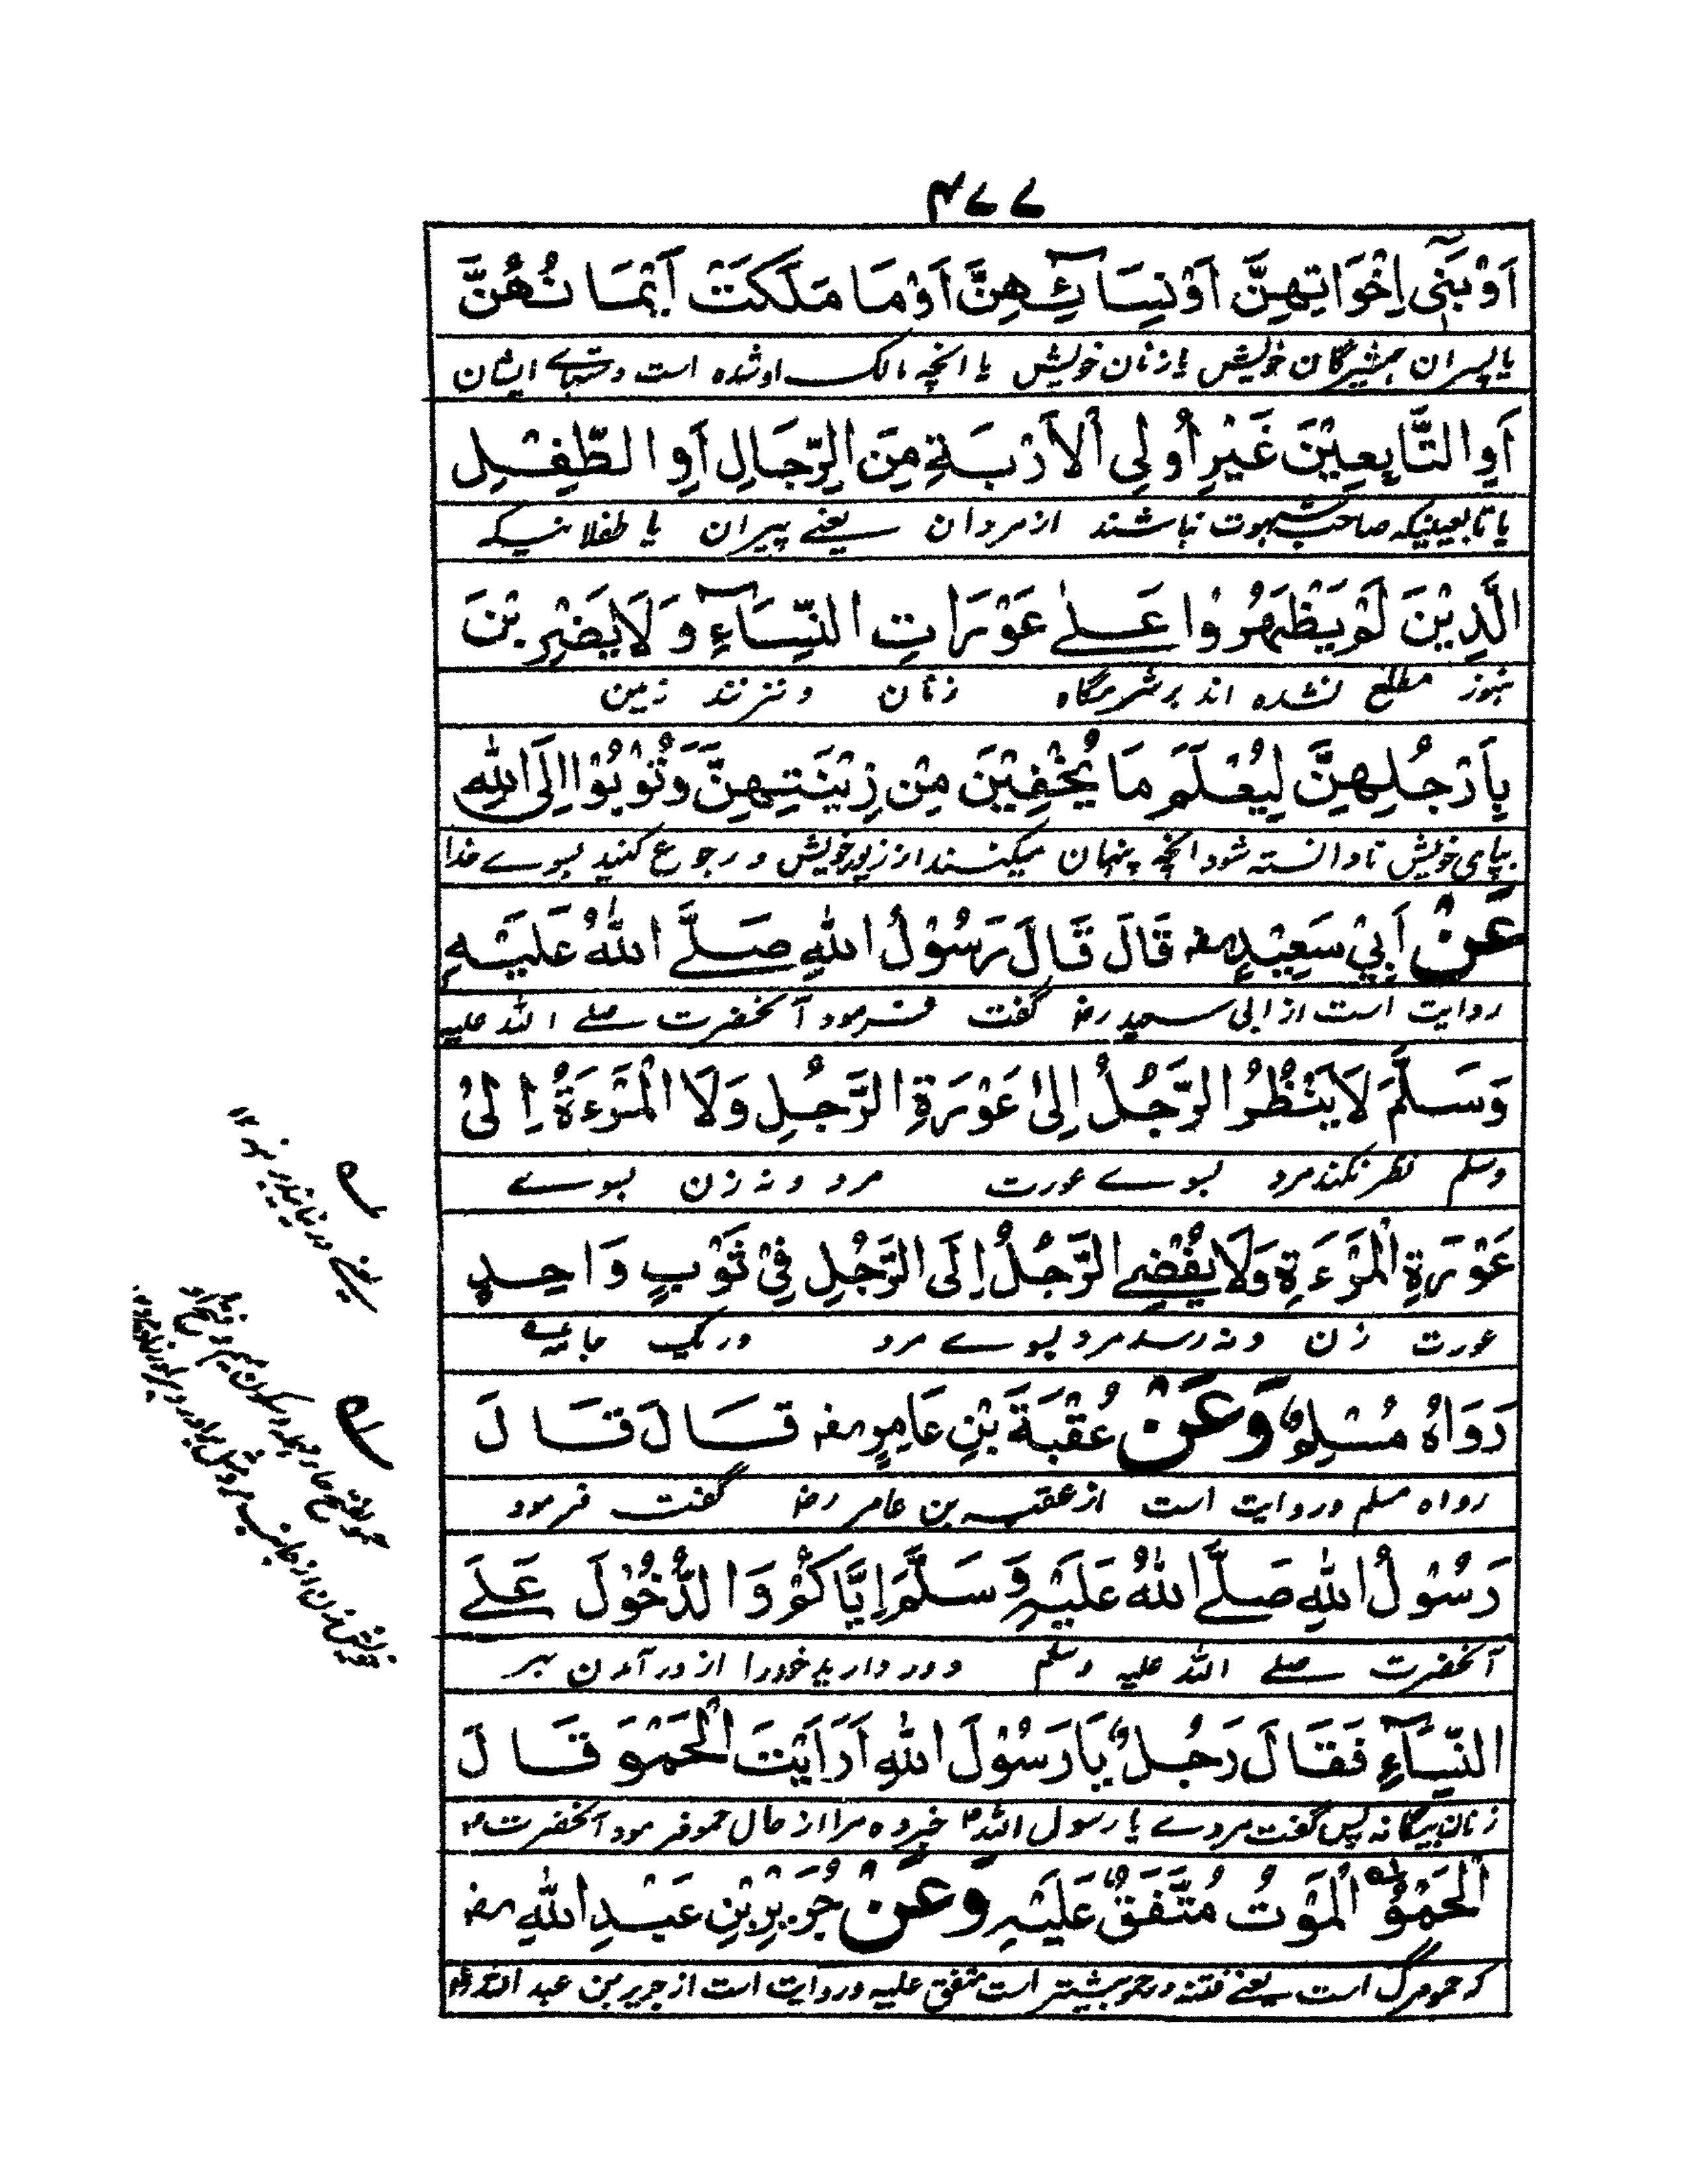 ۴۷۷
اَوْبَنِٓى اِخْوَاتِهِنَّ اَوْنِسَآئِهِنَّ اَوْمَا مَلَكَتْ اَيْمَانُهُنَّ
یا پسران ہمشیرگان خویش یا زنان خویش یا انچہ مالک اوشدہ است دستہاے ایشان
اَوِالتَّابِعِيْنَ غَيْرِ اُولِى الْاَرْبَةِ مِنَ الرِّجَالِ اَوِ الطِّفْلِ
یا تابعینیکہ صاحب شہوت نباشند از مردان یعنے پیران یا طفلانیکہ
الَّذِيْنَ لَمْ يَظْهَرُوْا عَلٰے عَوْرَاتِ النِّسَآءِ وَلَا يَضْرِبْنَ
ہنوز مطلع نشدہ اند بر شرمگاہ زنان و نزنند زمین
بِاَرْجُلِهِنَّ لِيُعْلَمَ مَا يُخْفِيْنَ مِنْ زِيْنَتِهِنَّ وَتُوْبُوْا اِلَى اللهِ
بپای خویش تا دانستہ شود انچہ پنہان میکنند از زیور خویش و رجوع کنید بسوے خدا
عَنْ اَبِيْ سَعِيْدٍ رضہ قَالَ قَالَ رَسُوْلُ اللهِ صَلَّے اللهُ عَلَيْهِ
روایت است از ابی سعید رضا گفت فرمود آنحضرت صلے اللہ علیہ
وَسَلَّمَ لَا يَنْظُرُ الرَّجُلُ اِلىٰ عَوْرَةِ الرَّجُلِ وَلَا الْمَرْءَةُ اِلىٰ
وسلم نظر نکند مرد بسوے عورت مرد و نہ زن بسوے
عَوْرَةِ الْمَرْءَةِ وَلَا يُفْضِے الرَّجُلُ اِلَى الرَّجُلِ فِيْ ثَوْبٍ وَاحِدٍ
عورت زن و نہ رسد مرد بسوے مرد در یک جامہ
رَوَاهُ مُسْلِمٌ وَعَنْ عُقْبَةَ بْنِ عَامِرٍ رضہ قَالَ قَالَ
رواہ مسلم و روایت است از عقبہ بن عامر رضا گفت فرمود
رَسُوْلُ اللهِ صَلَّے اللهُ عَلَيْهِ وَسَلَّمَ اِيَّاكُمْ وَالدُّخُوْلَ عَلَے
آنحضرت صلے اللہ علیہ وسلم دور دارید خود را از در آمدن بر
النِّسَآءِ فَقَالَ رَجُلٌ يَارَسُوْلَ اللهِ اَرَاَيْتَ الْحَمْوَ قَالَ
زنان بیگانہ پس گفت مردے یا رسول اللہ خبر دہ مرا از حال حمو فرمود آنحضرت
الْحَمْوُ الْمَوْتُ مُتَّفَقٌ عَلَيْهِ وَعَنْ جَرِيْرِ بْنِ عَبْدِ اللهِ رضہ
کہ حمو مرگ است یعنے فتنہ در حمو بیشتر است متفق علیہ و روایت است از جریر بن عبد اللہ
یعنے